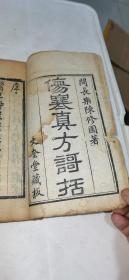 閩長樂陳修園著
傷寒真方謌括
文會堂藏板
序